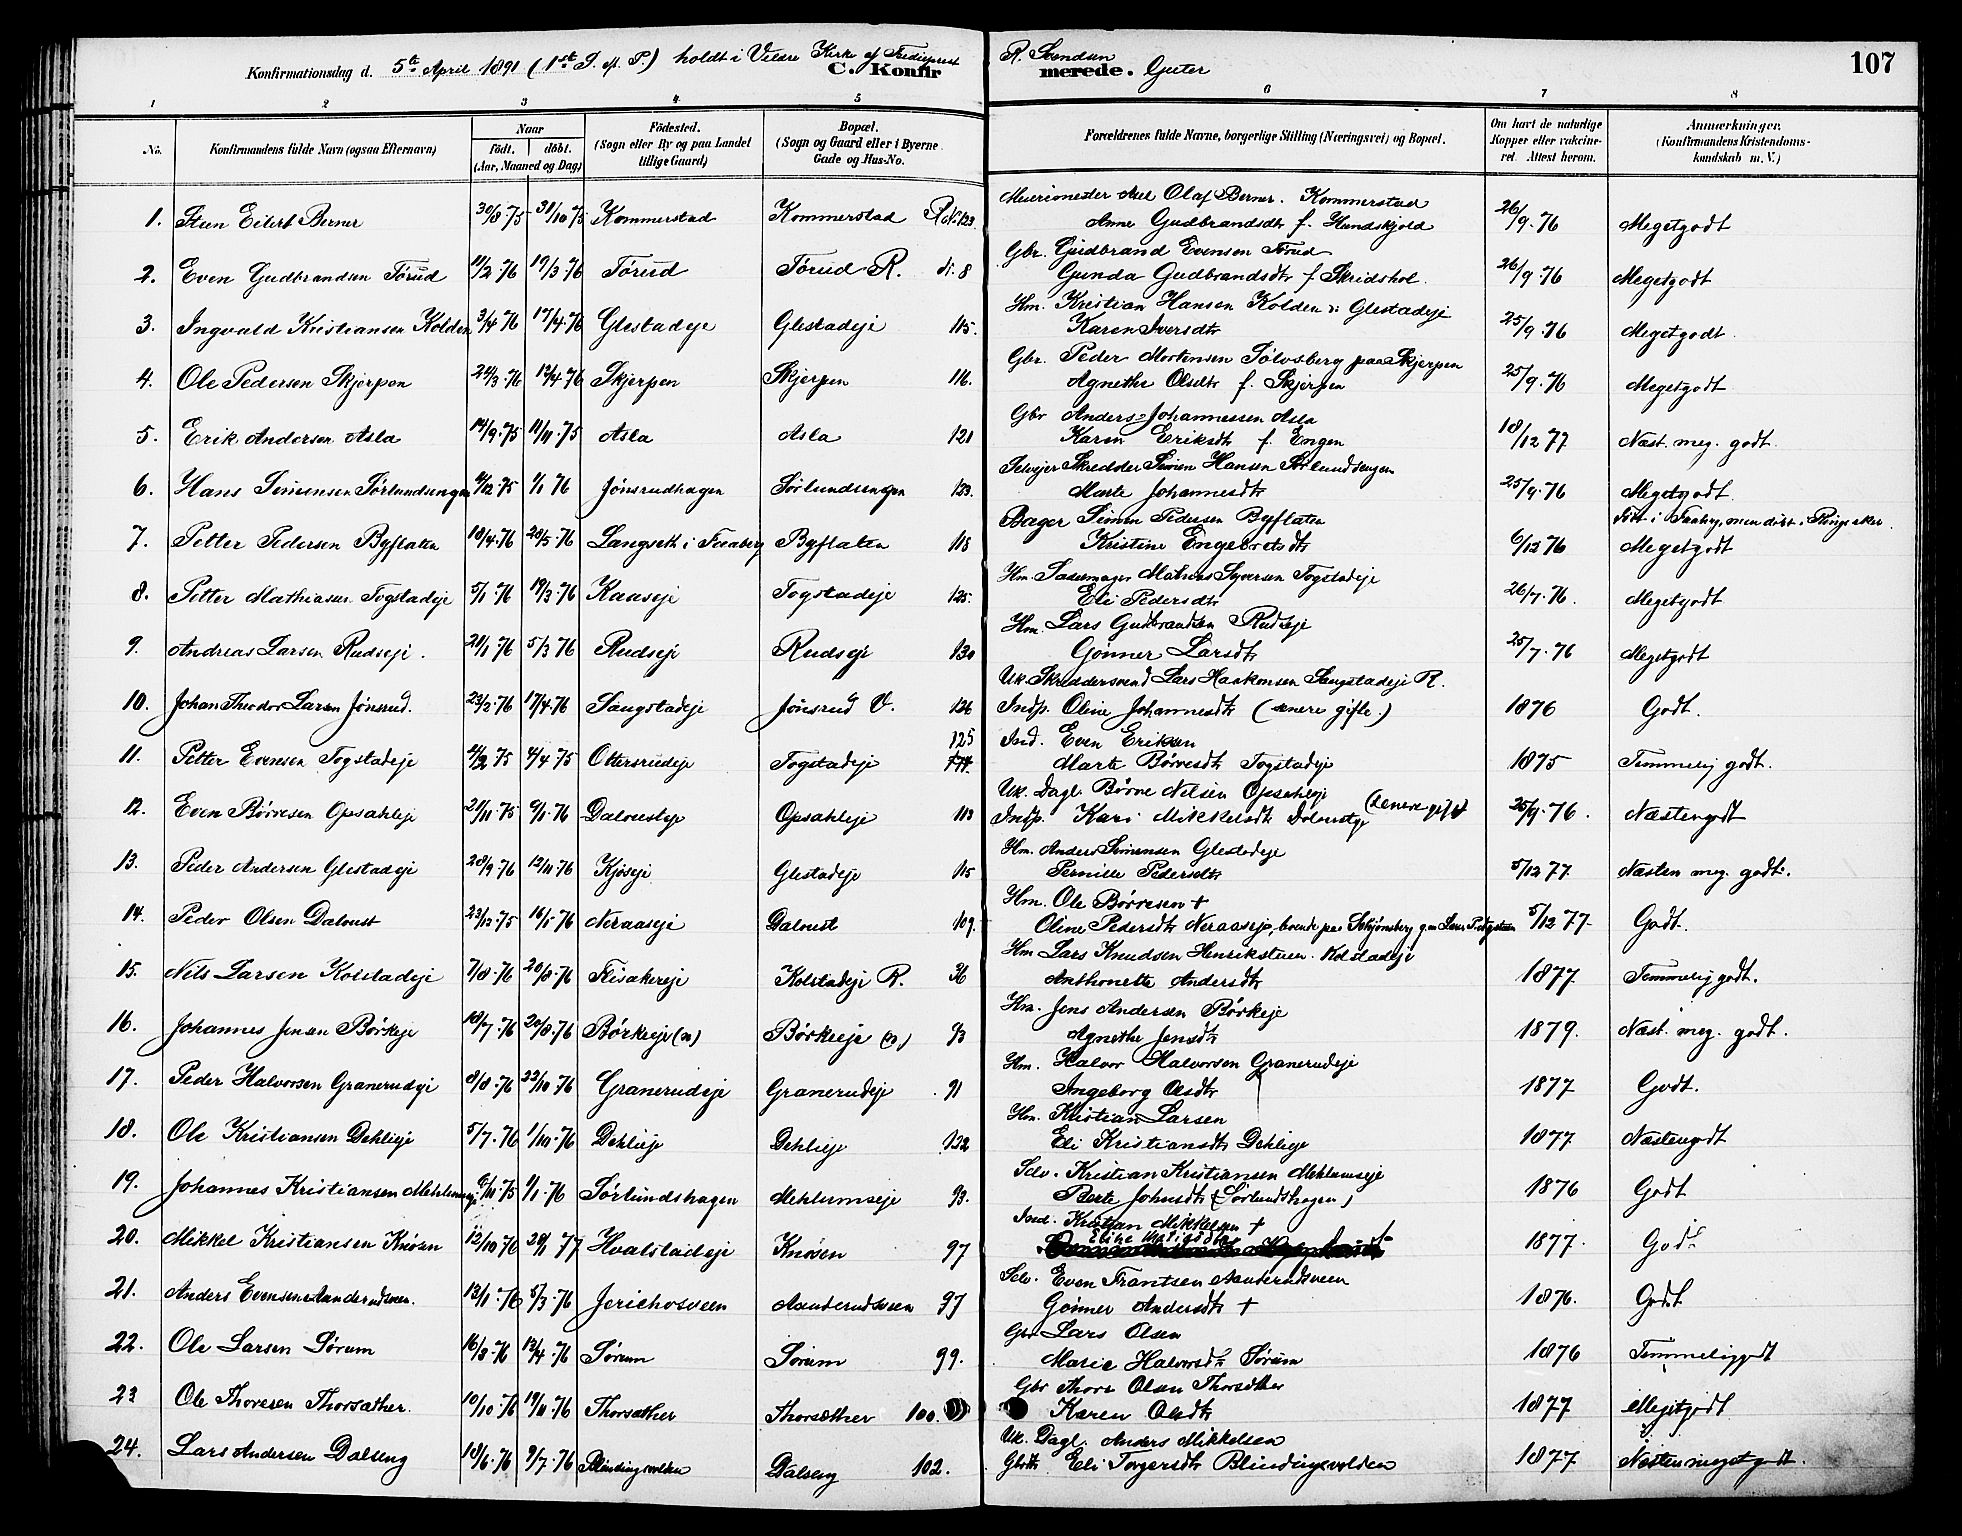 107
Konfirmationsdag d. 5te April 1891 (1st S. e. P.) holdt i Veldre Kirke af
C. Konfirmerede.
1 2 3 4 5 6 7 8
No. Konfirmandens fulde Navn (ogsaa Efternavn) Naar Födt. döbt. (Aar, Maaned og Dag) Födested. (Sogn eller By og paa Landet tillige Gaard) Bopæl. (Sogn og Gaard eller i Byerne Gade og Hus-No. Forældrenes fulde Navne, borgerlige Stilling (Næringsvei) og Bopæl. Om havt de naturlige Kopper eller vakcineret Attest herom. Anmærkninger. (Konfirmandens Kristendomskundskab m. V.)
1. Eilert Berner 30/8.75 31/10 75 Kommerstad Kommerstad R No 123 Olaf Berner. Kommerstad
Anne Gudbrandsdt f. Hundskjold 26/9.76 Megetgodt
2. Even Gudbrandsen Tørud 11/2.76 19/3.76 Tørud Tørud R. 8 Gbr. Gudbrand Evensen Tørud
Gunda Gudbrandsdt f. Skridshol. 26/9.76 Megetgodt
3. Ingvald Kristiansen Kolden 3/4 76 17/4 76 Glestadeje Glestadeje 115. Hm. Kristian Hansen Kolden Glestadeje
Karen Iversdt 25/9.76 Megetgodt
4. Ole Pedersen Skjerpen 24/3 76 Skjerpen Skjerpen 116. Gbr. Peder Mortensen Sølvsberg paa Skjerpen
Agnethe Olsdt f. Skjerpen 25/9.76 Megetgodt
5. Erik Andersen Asla 14/9.75 11/11.75 Asla Asla 121 Gbr Anders Johannessen Asla
Karin Eriksdt f. Engen 18/12 77 Næst. meg. godt.
6. Hans Simensen Sørlundsengen 1/1 76 Jønsrudhagen Sørlundsengen 123. Selvejer Skredder Simen Hansen Sørlundsengen
Marte Johannesdt 25/9.76 Megetgodt
7. Petter Pedersen Byflaten 18/4.76 20/5.76 Langseth i Faaberg Byflaten 118 Bager Simen Pedersen Byflaten
Kristine Engebretsdt 6/12 76 Født i Faaberg, men døbt i Ringsaker.
Megetgodt
8. Petter Mathiasen Togstadeje 5/1.76 19/3.76 Kaaseje Togstadeje 125. Hm. Sadelmager Mathias Syversen Togstadeje
Eli Pedersdt 26/7.76. Megetgodt
9. Andreas Larsen Rudseje. 21/1 76 5/3 76 Rudseje Rudseje 130 Hm. Lars Gudbrandsen Rudseje
Gønner Larsdt 25/7.76 Megetgodt
10. Johan Theodor Larsen Jønsrud. 23/2.76 17/4.76 Sangstadeje Jønsrud V. 126 Uk. Skreddersvend Lars Haakensen Sangstadeje R.
Indp. Oline Johannesdt (senere gifte.) 1876 Godt.
11. Petter Evensen Togstadeje 4/4 75 Ottersrudeje Togstadeje 125 Ind. Even Eriksen
Marte Børresdt Togstadeje 1875 Temmelig godt.
12. Even Børresen Opsahleje 21/11.75 6/1.76 Opsahleje 113 Uk. Dagl. Børre Nilsen Opsahleje
Indp. Kari Mikkelsdt (senere gift) 25/9.76. Næstengodt
13. Peder Andersen Glestadeje 28/9.76 12/11.76 Kjøseje Glestadeje 115 Hm. Anders Simensen Glestadeje
Pernille Pedersdt 5/12 77 Næsten meg. godt.
14. Peder Olsen Daloust 23/12.75 16/1.76 Neraaseje Daloust 109. Hm. Ole Børresen +
Oline Pedersdt Neraaseje, boende paa Schjønsberg 5/12 77. Godt.
15. Nils Larsen Kolstadeje 7/8.76 20/8.76 Flisakereje Kolstadeje R. 36 Hm Lars Knudsen Henrikstuen. Kolstadeje
Anthonette Andersdt 1877. Temmelig godt.
16. Johannes Jensen Børkeje 18/7.76 20/8.76 Børkeeje Børkeeje 93 Hm. Jens Andersen Børkeje
Agnethe Jensdt 1879. Næst. meg. godt.
17. Peder Halvorsen Granerudeje 8/8.76 22/10 76 Granerudeje Granerudeje 91 Hm. Halvor Halvorsen Granerudeje
Ingeborg Olsdt 1877 Godt.
18. Ole Kristiansen Dehlieje 5/7.76 1/10.76 Dehlieje Dehlieje 122 Hm. Kristian Larsen
Eli Kristiansdt Dehlieje 1877 Næstengodt
19. Johannes Kristiansen Mehlumseje 6/11.75 1/1.76 Sørlundshagen Mehlumseje 93. Selv. Kristian Kristiansen Mehlumseje
Berte Johnsdt (Sørlundshagen) 1876 Godt
20. Mikkel Kristiansen Knøsen 12/10.76 28/1 77 Hvalstadeje Knøsen 97 Ind. Kristian Mikkelsen +
1877. Godt
21. Anders Evensen Aanderudsveen. 13/1.76 5/3.76 Jerichosveen Aanderudsveen 97 Selv. Even Frantsen Aanderudsveen
Gønner Andersdt + 1876. Godt
22. Ole Larsen Sørum 16/3.76 Sørum Sørum 99. Gbr Lars Olsen
Marie Halvorsdt Sørum 1876 Temmeliggodt
23 Ole Thoresen Thorsæther. 10/10.76 19/11.76 Thorsæther Thorsæther 100. Gbr Thore Olsen Thorsæther
Karen Olsdt 1877 Megetgodt
24. Lars Andersen Dalseng 18/6.76 9/7.76 Blindingsvolden Dalseng 102. Uk. Dagl. Anders Mikkelsen
Eli Torgersdt Blindingsvolden 1877 Næstenmegetgodt.